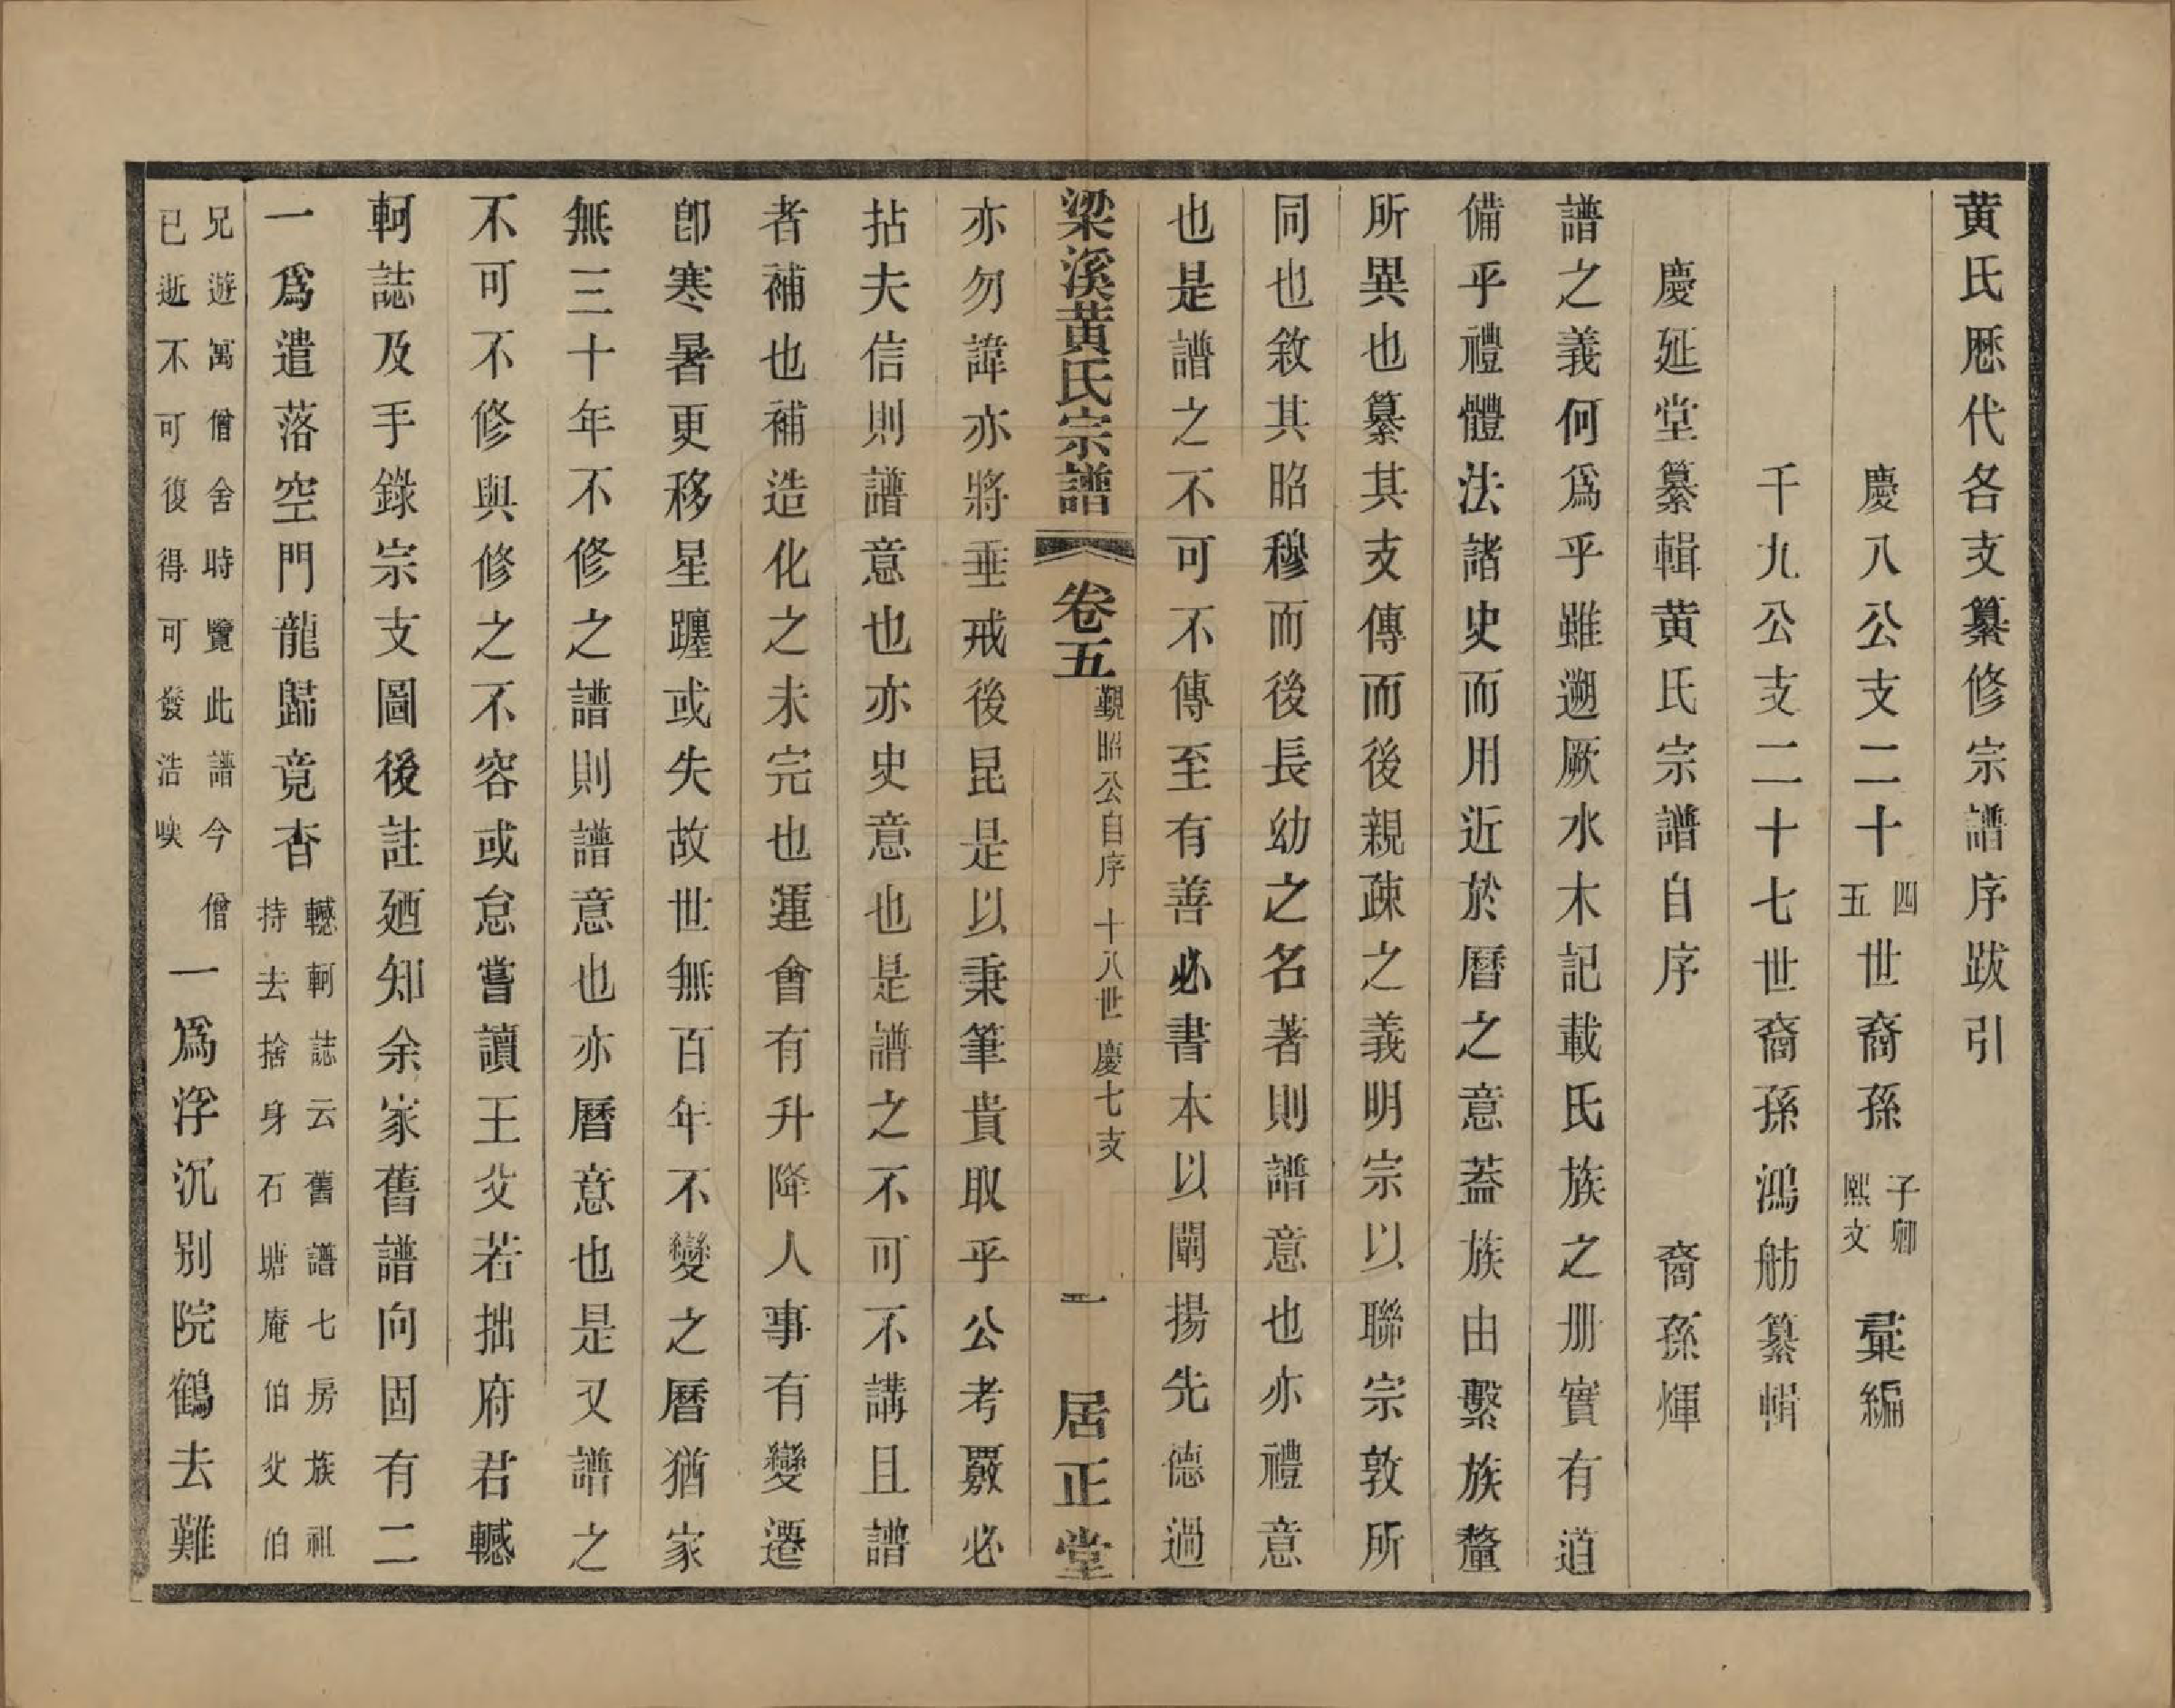 黄氏厯代各支纂修宗譜序跋引
慶八公支二十四五世裔孫子卿熙文彚編
千九公支二十七世裔孫鴻舫纂輯
慶延堂纂輯黄氏宗譜自序　裔孫煇
譜之義何爲乎雖遡厥水木記載氏族之册實有道
備乎禮體法諸史而用近於曆之意蓋族由繫族釐
所異也纂其支傳而後親疎之義明宗以聯宗敦所
同也敘其昭穆而後長幼之名著則譜意也亦禮意
也是譜之不可不傳至有善必書本以闡揚先德過
梁溪黄氏宗譜　卷五　觀昭公自序　十八世　慶七支　一　居正堂
亦勿諱亦將垂戒後昆是以秉筆貴取乎公考覈必
拈夫信則譜意也亦史意也是譜之不可不講且譜
者補也補造化之未完也運會有升降人事有變遷
卽寒暑更移星躔或失故世無百年不變之曆猶家
無三十年不修之譜則譜意也亦曆意也是又譜之
不可不修與修之不容或怠嘗讀王父若拙府君轗
軻誌及手錄宗支圖後註廼知余家舊譜向固有二
一爲遣落空門龍歸竟杳轗軻誌云舊譜七房族祖持去捨身石塘庵伯父伯
兄遊寓僧舍時覽此譜今僧已逝不可復得可發浩唉一爲浮沉别院鶴去難